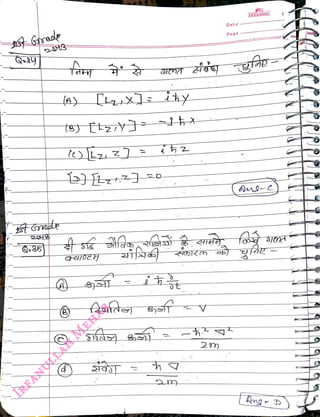 Date
Page
Ist Grade
2013
Q.24
निम्न में से गलत संबंध चुनिए -
(A) [Lz, X] = iℏy
(B) [Lz, Y] = -iℏx
(C) [Lz, Z] = iℏz
(D) [Lz, Z] = 0
Ans-C
Ist Grade
2013
Q.25
दी गई भौतिक राशियों के सामने लिखे गलत
क्वाण्टम यांत्रिकी संकारक को चुनिए -
(A) ऊर्जा = iℏ ∂/∂t
(B) स्थितिज ऊर्जा = V
(C) गतिज ऊर्जा = -ℏ²∇²/2m
(d) संवेग = ℏ∇/2m
Ans-D
IRFANULLAH MEHAR